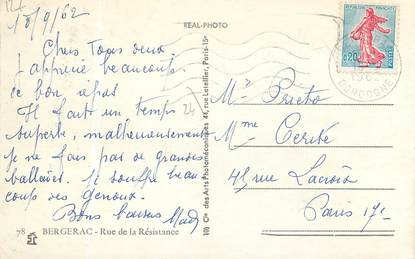 18/9/62
REAL-PHOTO
Chers Tous deux.
J'apprécie beaucoup
ce bon repas
Il fait un temps
superbe, malheureusement
je ne fais pas de grandes
ballades. Je souffre beau
coup des genoux.
Bons baisers
78 BERGERAC - Rue de la Résistance
Cie des Arts Photomécaniques 44, rue Letellier, Paris-15e
24
0,20
DORDOGNE
Mr Prieto
Mme
45 rue Lacroix
Paris 17e